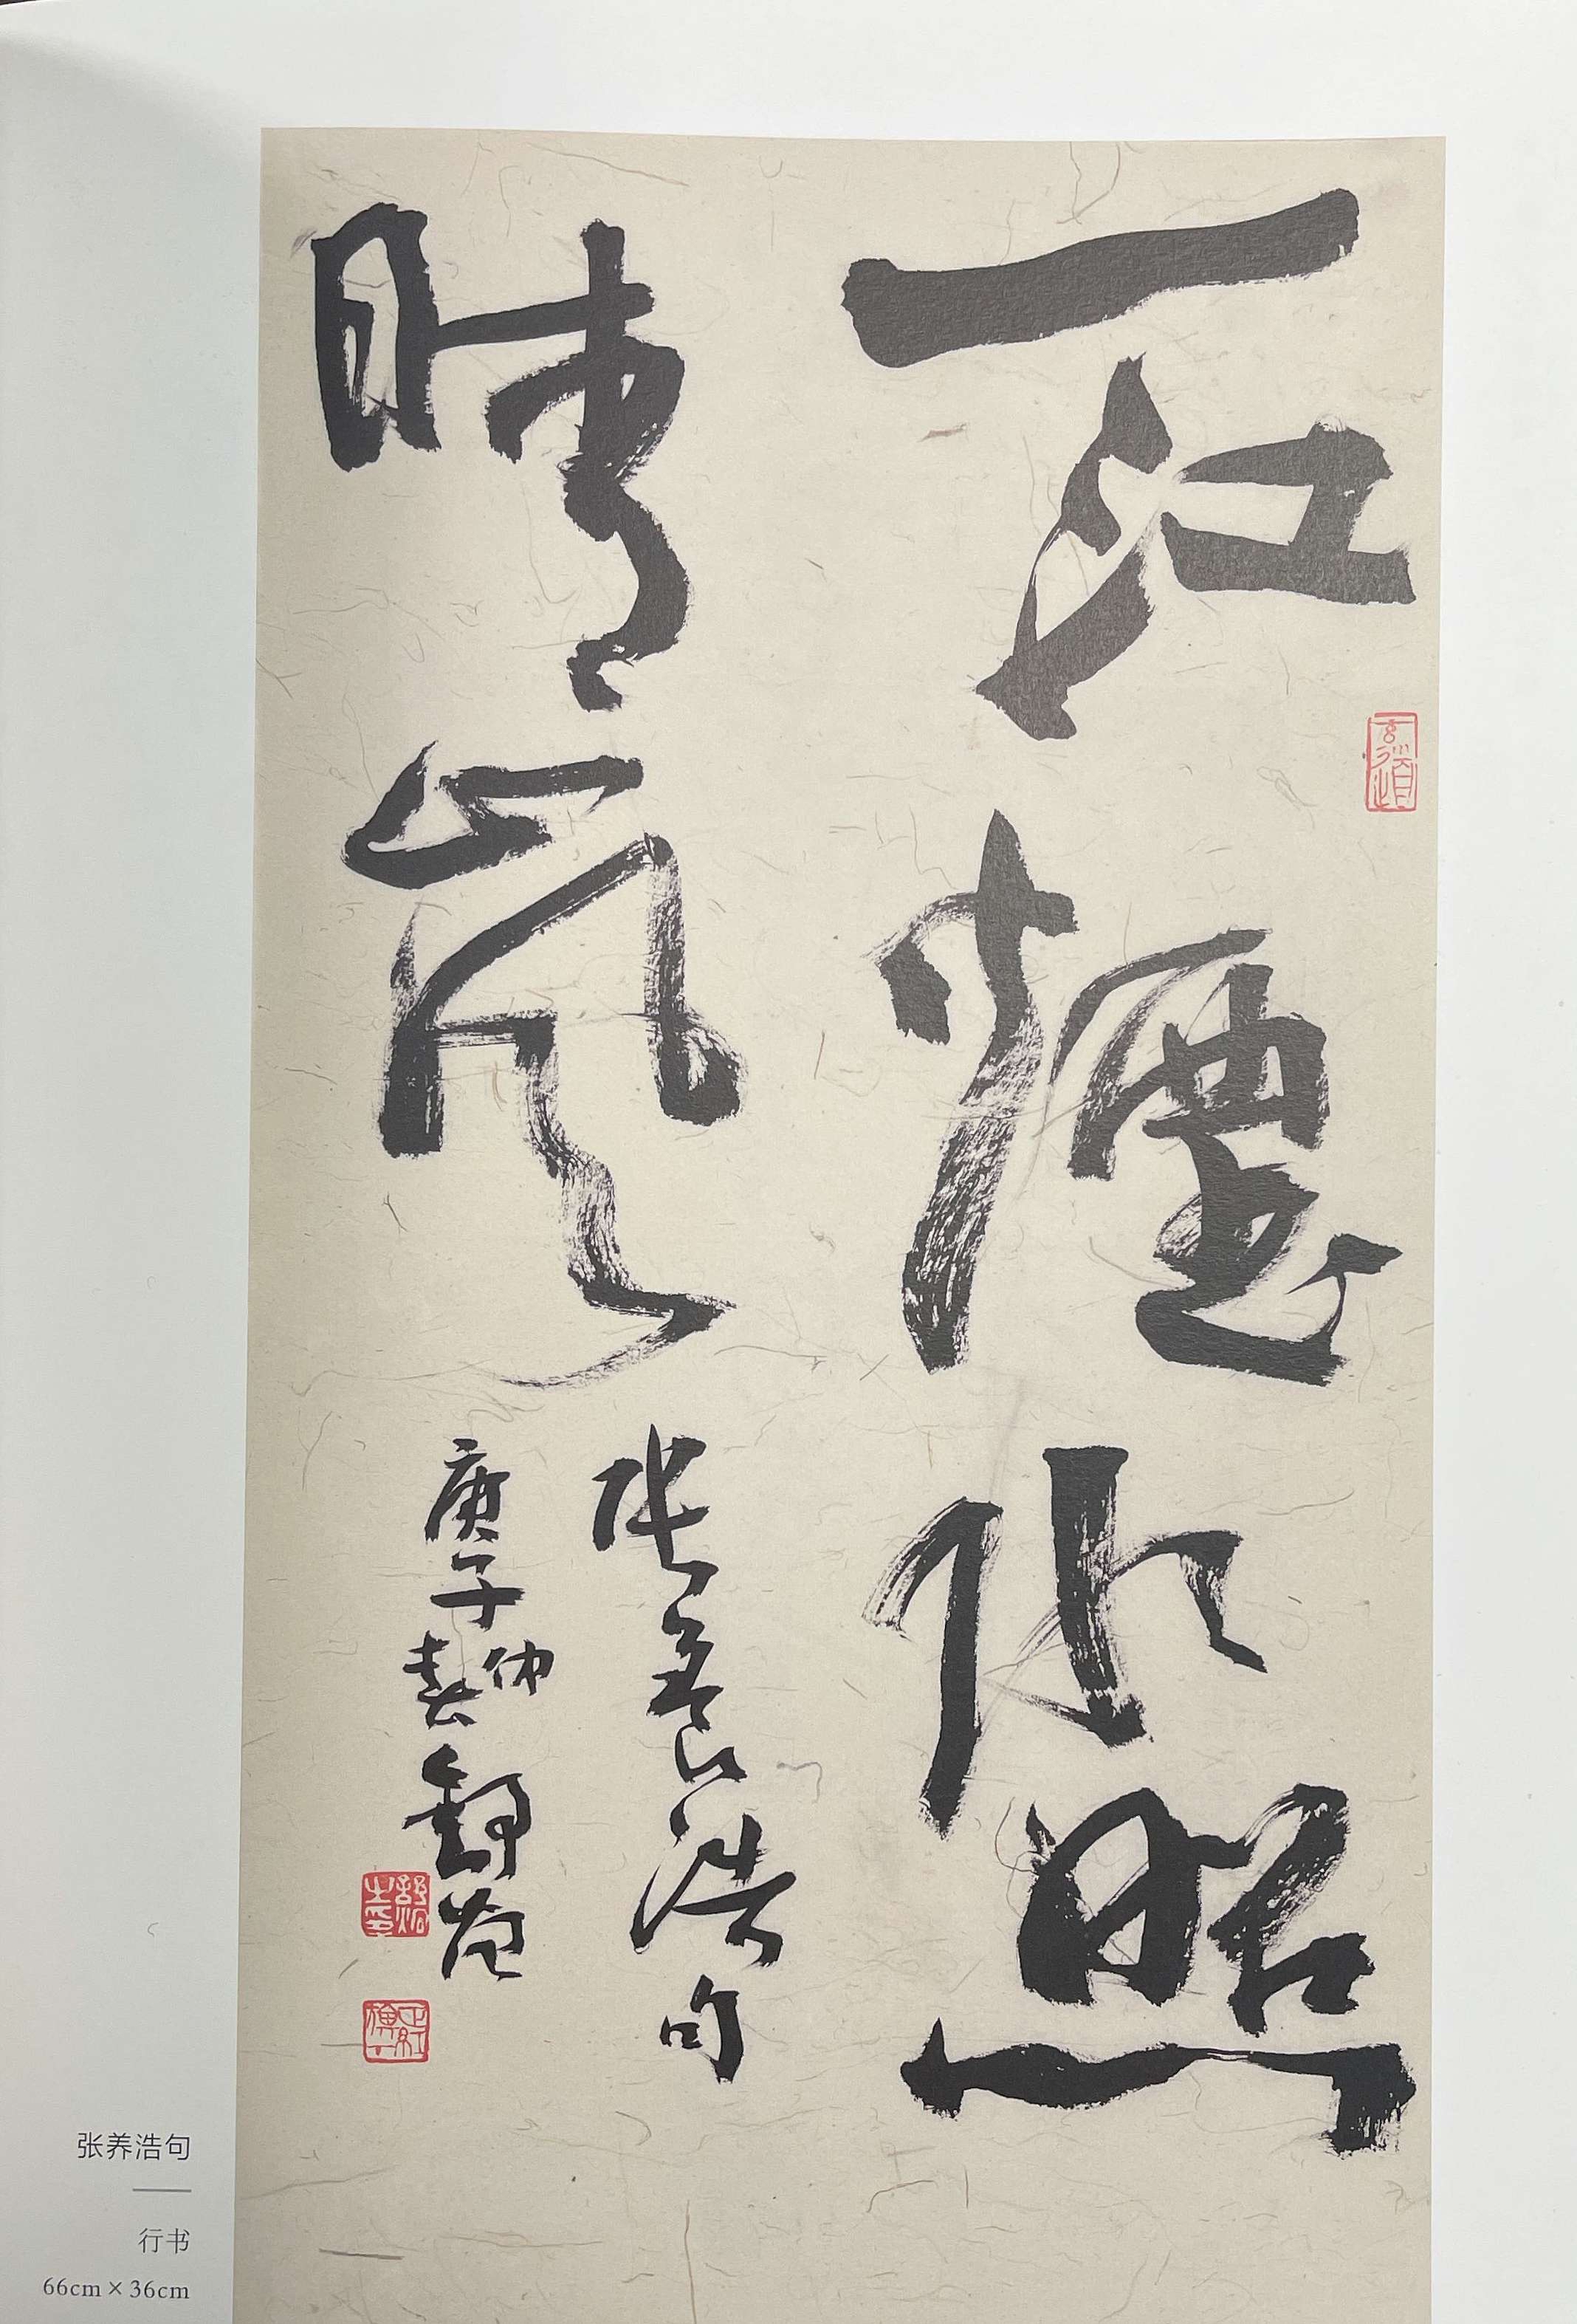 一江煙水照
晴嵐
张养浩句
庚子仲春舒炯
玄道
张养浩句
行书
66cm×36cm